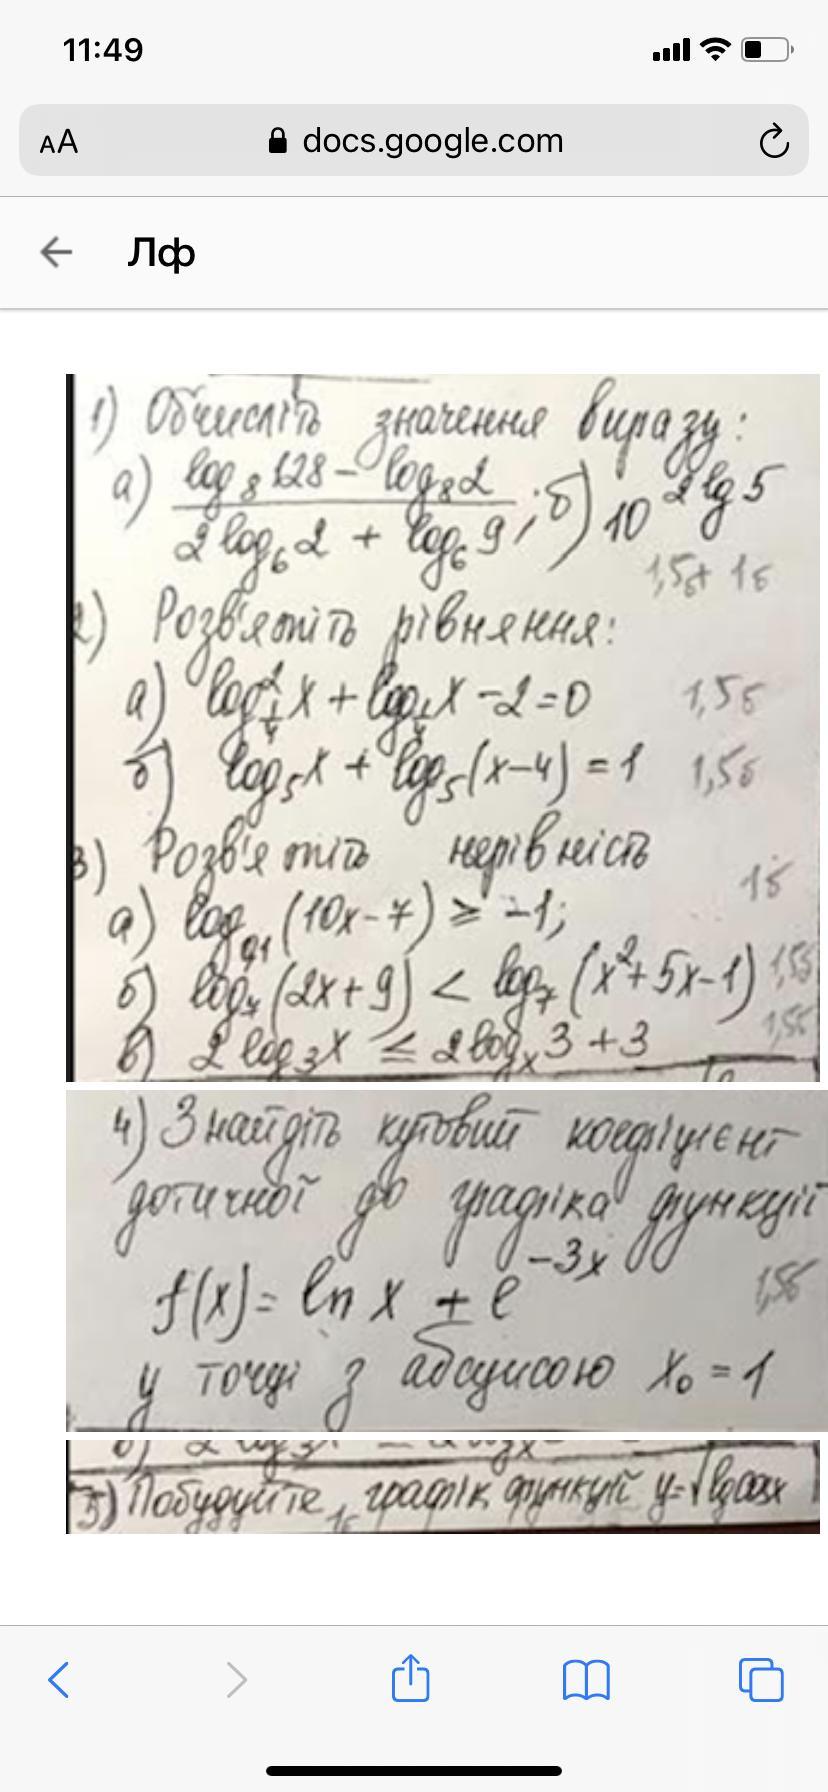 11:49
AA docs.google.com
Лф
1) Обчисліть значення виразу:
а) (log₈128 − log₈2)/(2log₆2 + log₆9); б) 10^(2lg5)
1,5б+ 1б
2) Розв'яжіть рівняння:
а) log²_(1/4) x + log_(1/4) x − 2 = 0 1,5б
б) log₅x + log₅(x−4) = 1 1,5б
3) Розв'яжіть нерівність
1б
а) log₀,₁(10x−7) ≥ −1;
б) log₇(2x+9) < log₇(x²+5x−1) 1,5б
в) 2log₃x ≤ 2logₓ3 + 3 1,5б
4) Знайдіть кутовий коефіцієнт
дотичної до графіка функції
f(x) = ln x + e^(−3x) 1,5б
у точці з абсцисою x₀ = 1
5) Побудуйте графік функції y=√lgcosx
1б